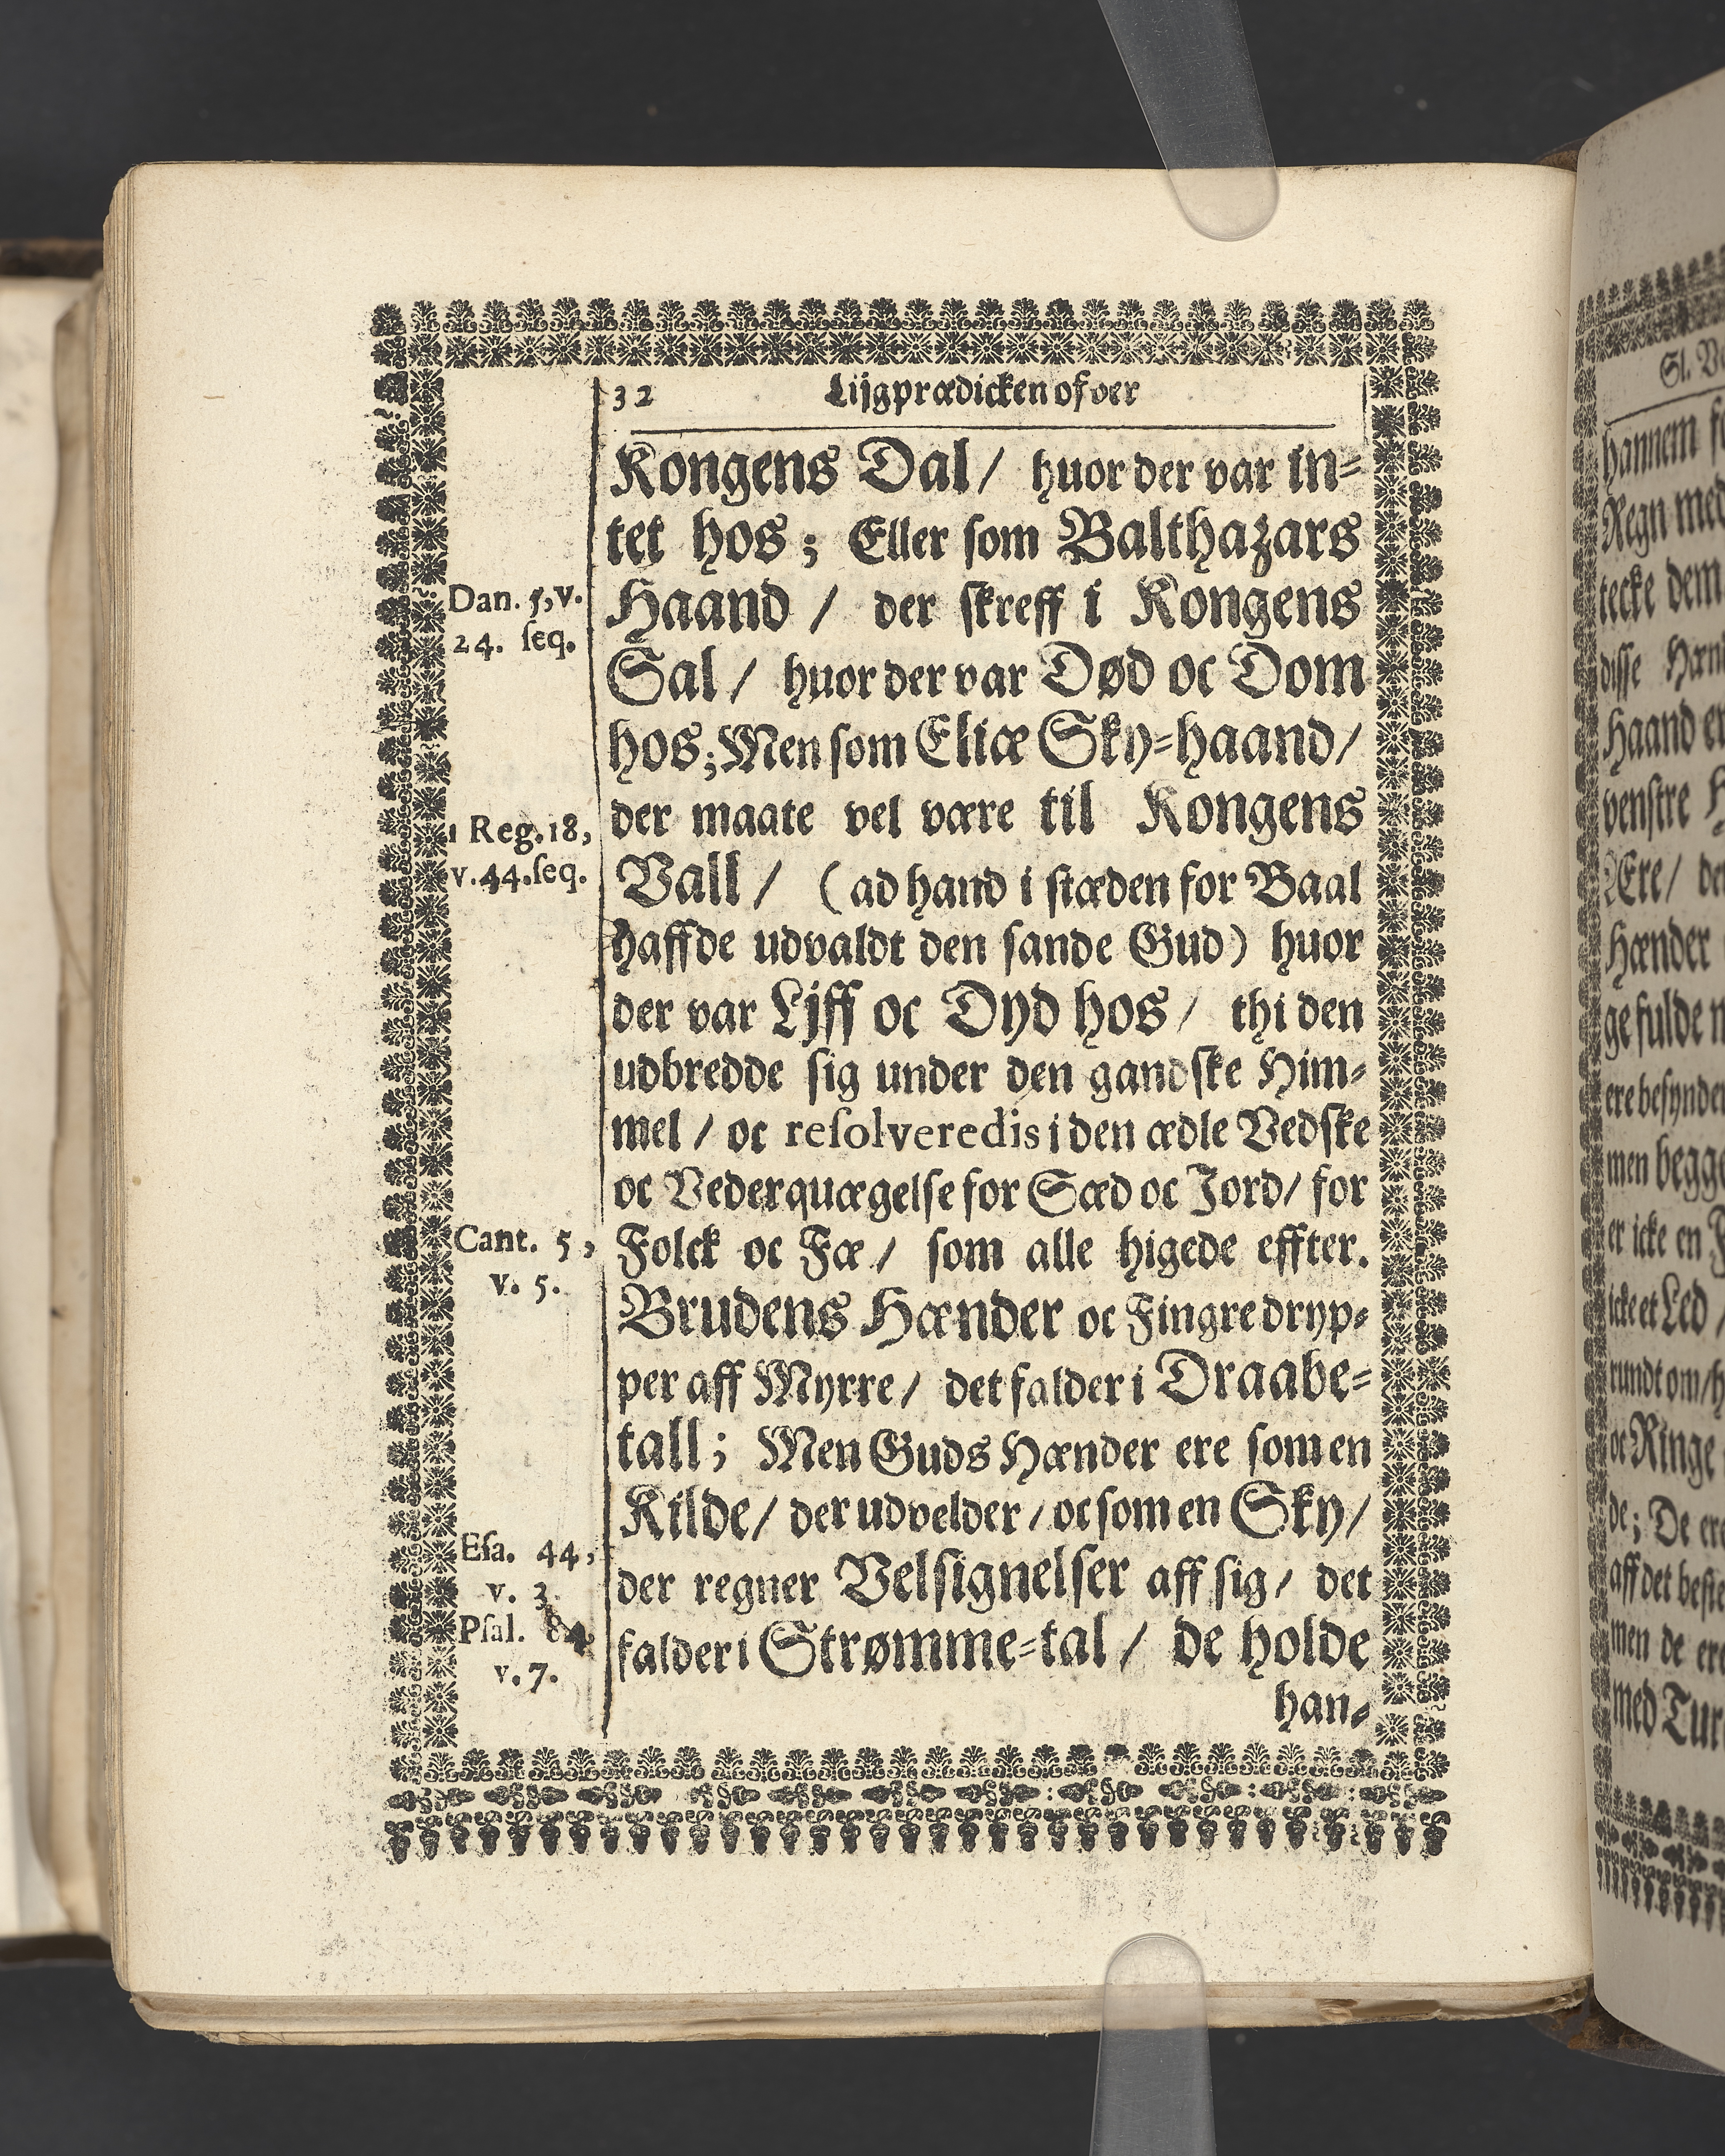 32 Lijgprædicken ofver
Kongens Dal / huor der var in-
tet hos; Eller som Balthazars
Dan. 5, v.
24. seq.
Haand / der skreff i Kongens
Sal / huor der var Død oc Dom
hos; Men som Eliæ Sky-haand /
1 Reg. 18,
v. 44. seq.
der maate vel være til Kongens
Vall / (ad hand i stæden for Baal
haffde udvaldt den sande Gud) huor
der var Ljff oc Dyd hos / thi den
udbredde sig under den gandske Him-
mel / oc resolveredis i den ædle Vedske
oc Vederquægelse for Sæd oc Jord / for
Cant. 5,
v. 5.
Folck oc Fæ / som alle higede effter.
Brudens Hænder oc Fingre dryp-
per aff Myrre / det falder i Draabe-
tall; Men Guds Hænder ere som en
Kilde / der udvelder / oc som en Sky /
Esa. 44,
v. 3.
Psal. 84,
v. 7.
der regner Velsignelser aff sig / det
falder i Strømme-tal / de holde
han-
Sl.
hannem
Regn med
tecke dem
disse
Haand
venstre
Ære /
Hænder
ge fulde
men begge
er icke en
icke et Led /
rundt om /
oc Ringe
de; De
aff det
men de
med